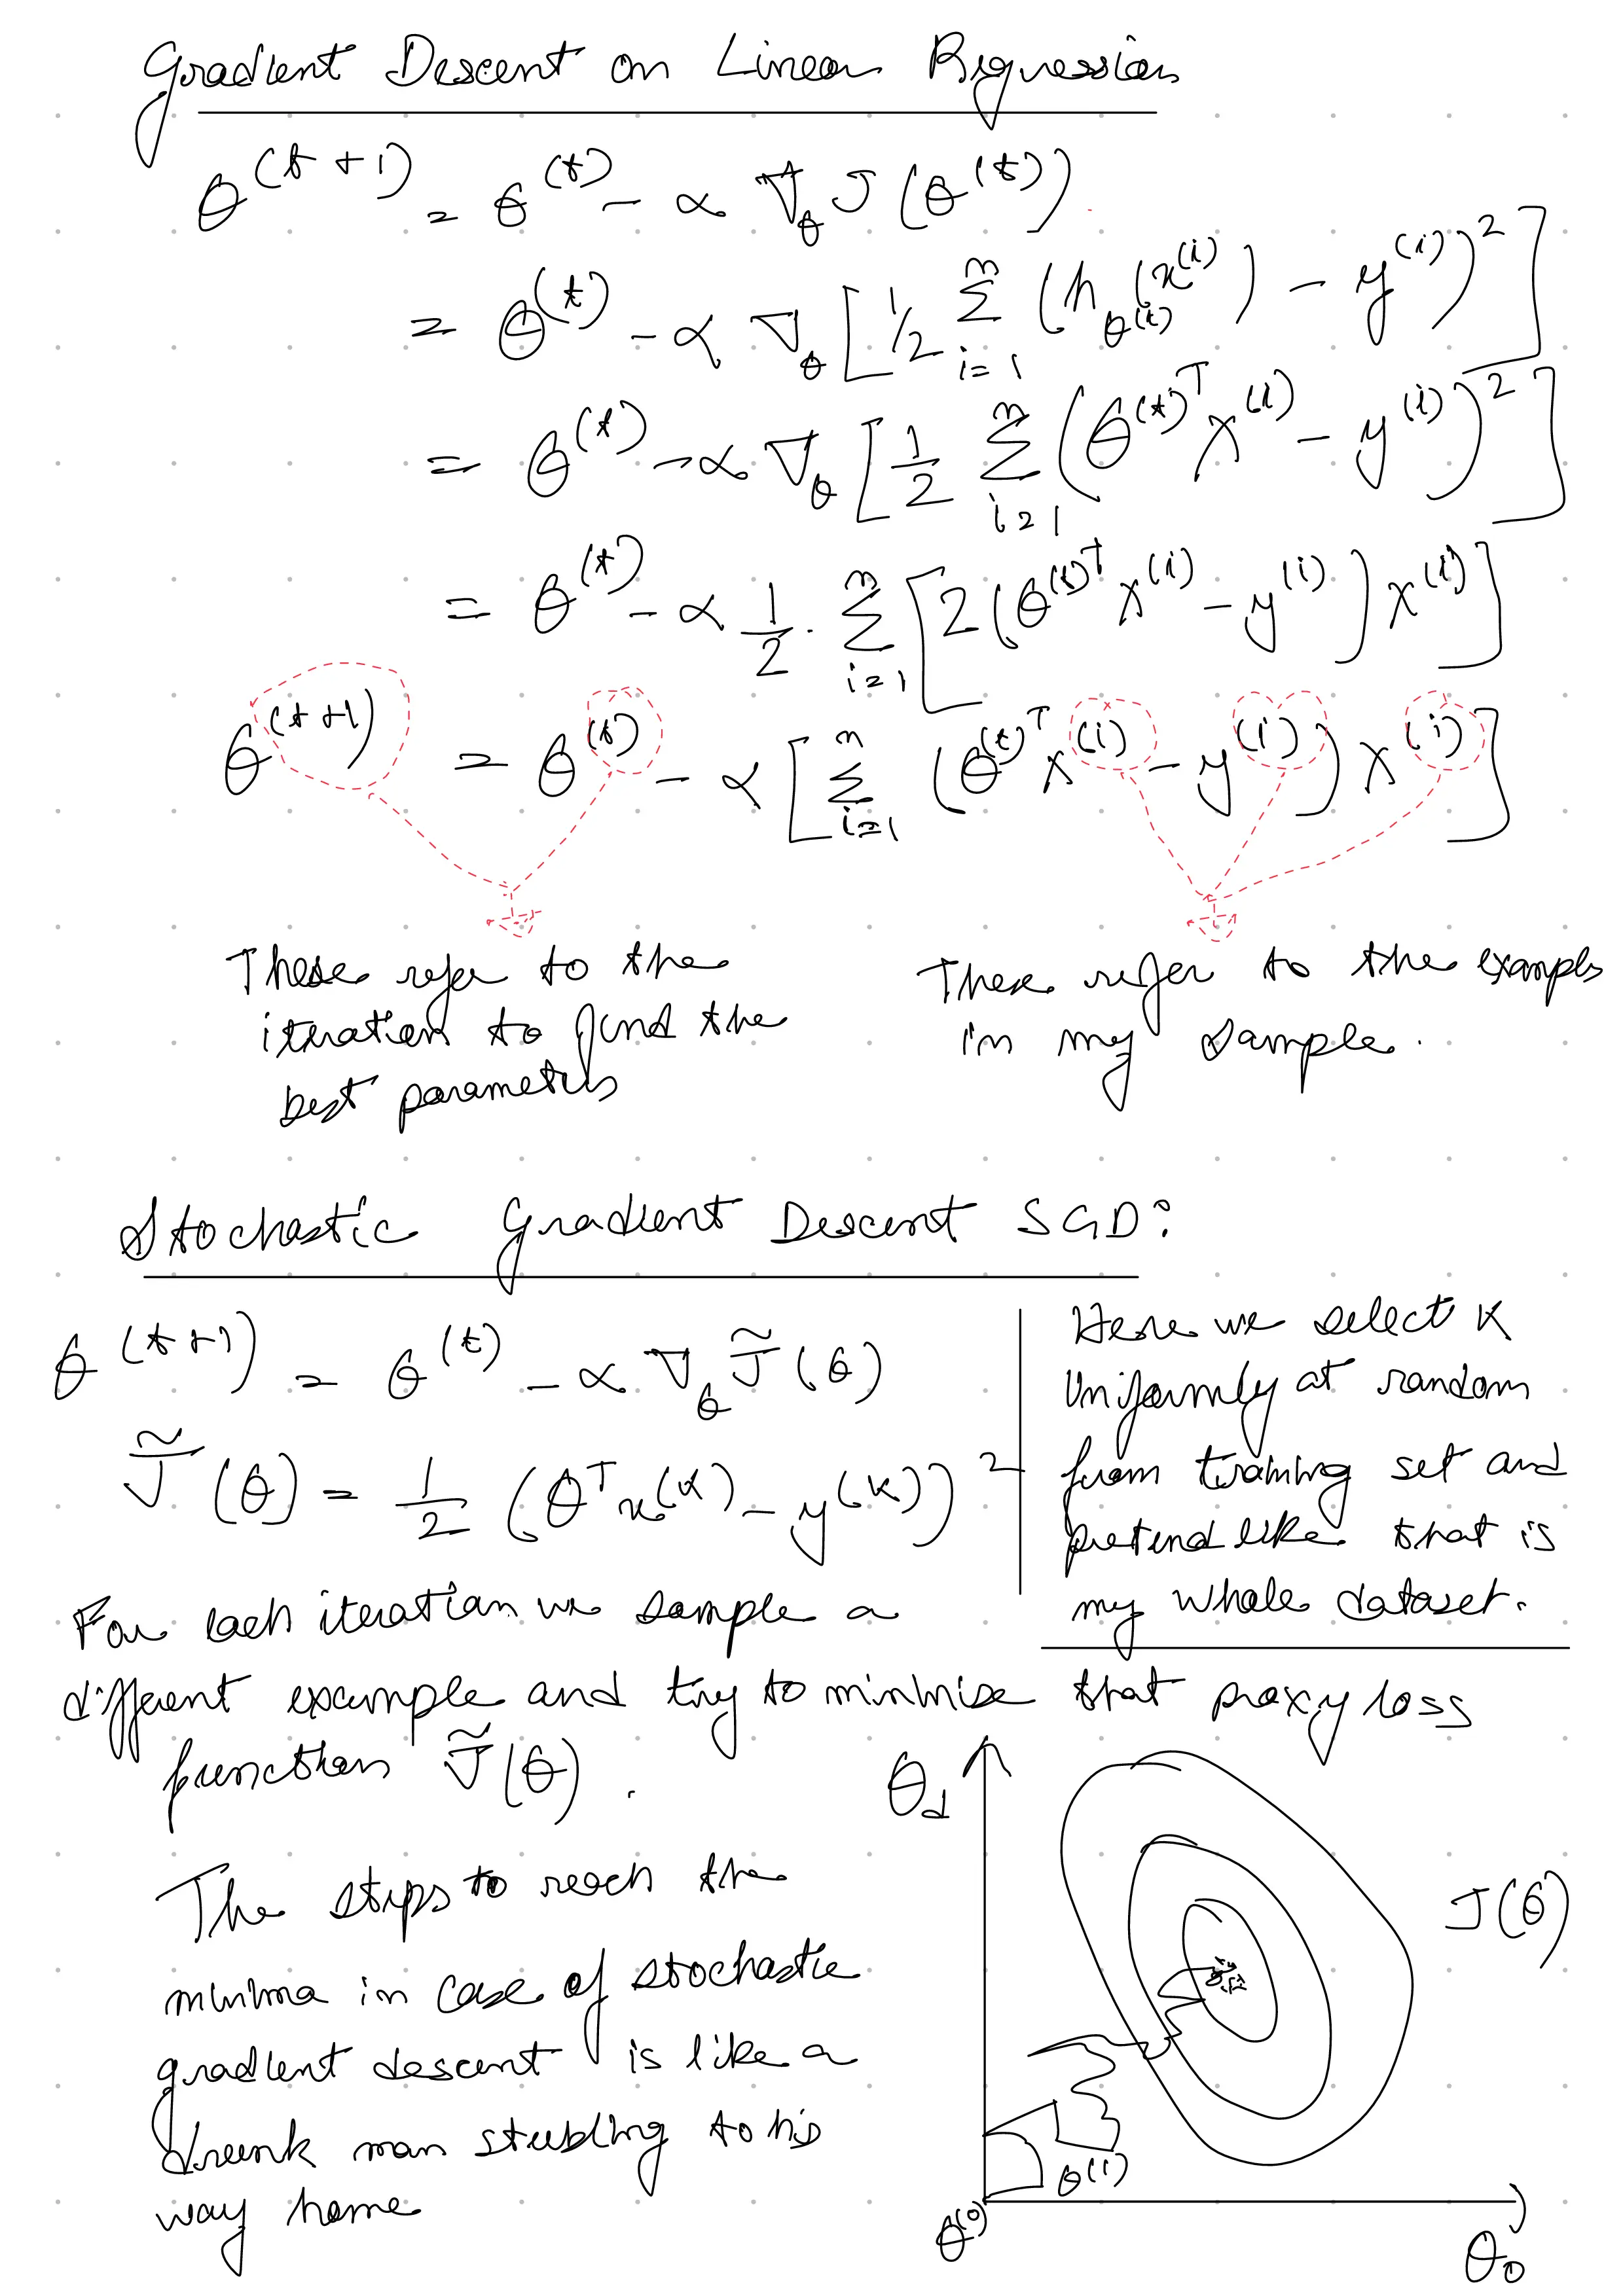 Gradient Descent on Linear Regression
θ^(t+1) = θ^(t) - α ∇_θ J(θ^(t))
= θ^(t) - α ∇_θ [1/2 Σ_{i=1}^{n} (h_{θ^(t)}(x^(i)) - y^(i))^2]
= θ^(t) - α ∇_θ [1/2 Σ_{i=1}^{n} (θ^(t)^T x^(i) - y^(i))^2]
= θ^(t) - α 1/2 · Σ_{i=1}^{n} [2(θ^(t)^T x^(i) - y^(i)) x^(i)]
θ^(t+1) = θ^(t) - α [Σ_{i=1}^{n} (θ^(t)^T x^(i) - y^(i)) x^(i)]
These refer to the
iteration to find the
best parameters
These refer to the examples
in my sample.
Stochastic Gradient Descent SGD:
θ^(t+1) = θ^(t) - α ∇_θ J̃(θ)
J̃(θ) = 1/2 (θ^T x^(k) - y^(k))^2
Here we select K
Uniformly at random
from training set and
pretend like that is
my whole dataset.
For each iteration we sample a
different example and try to minimise that proxy loss
function J̃(θ).
The steps to reach the
minima in case of stochastic
gradient descent is like a
drunk man stubling to his
way home
θ_d
J(θ)
θ^(1)
θ^(0)
θ_0